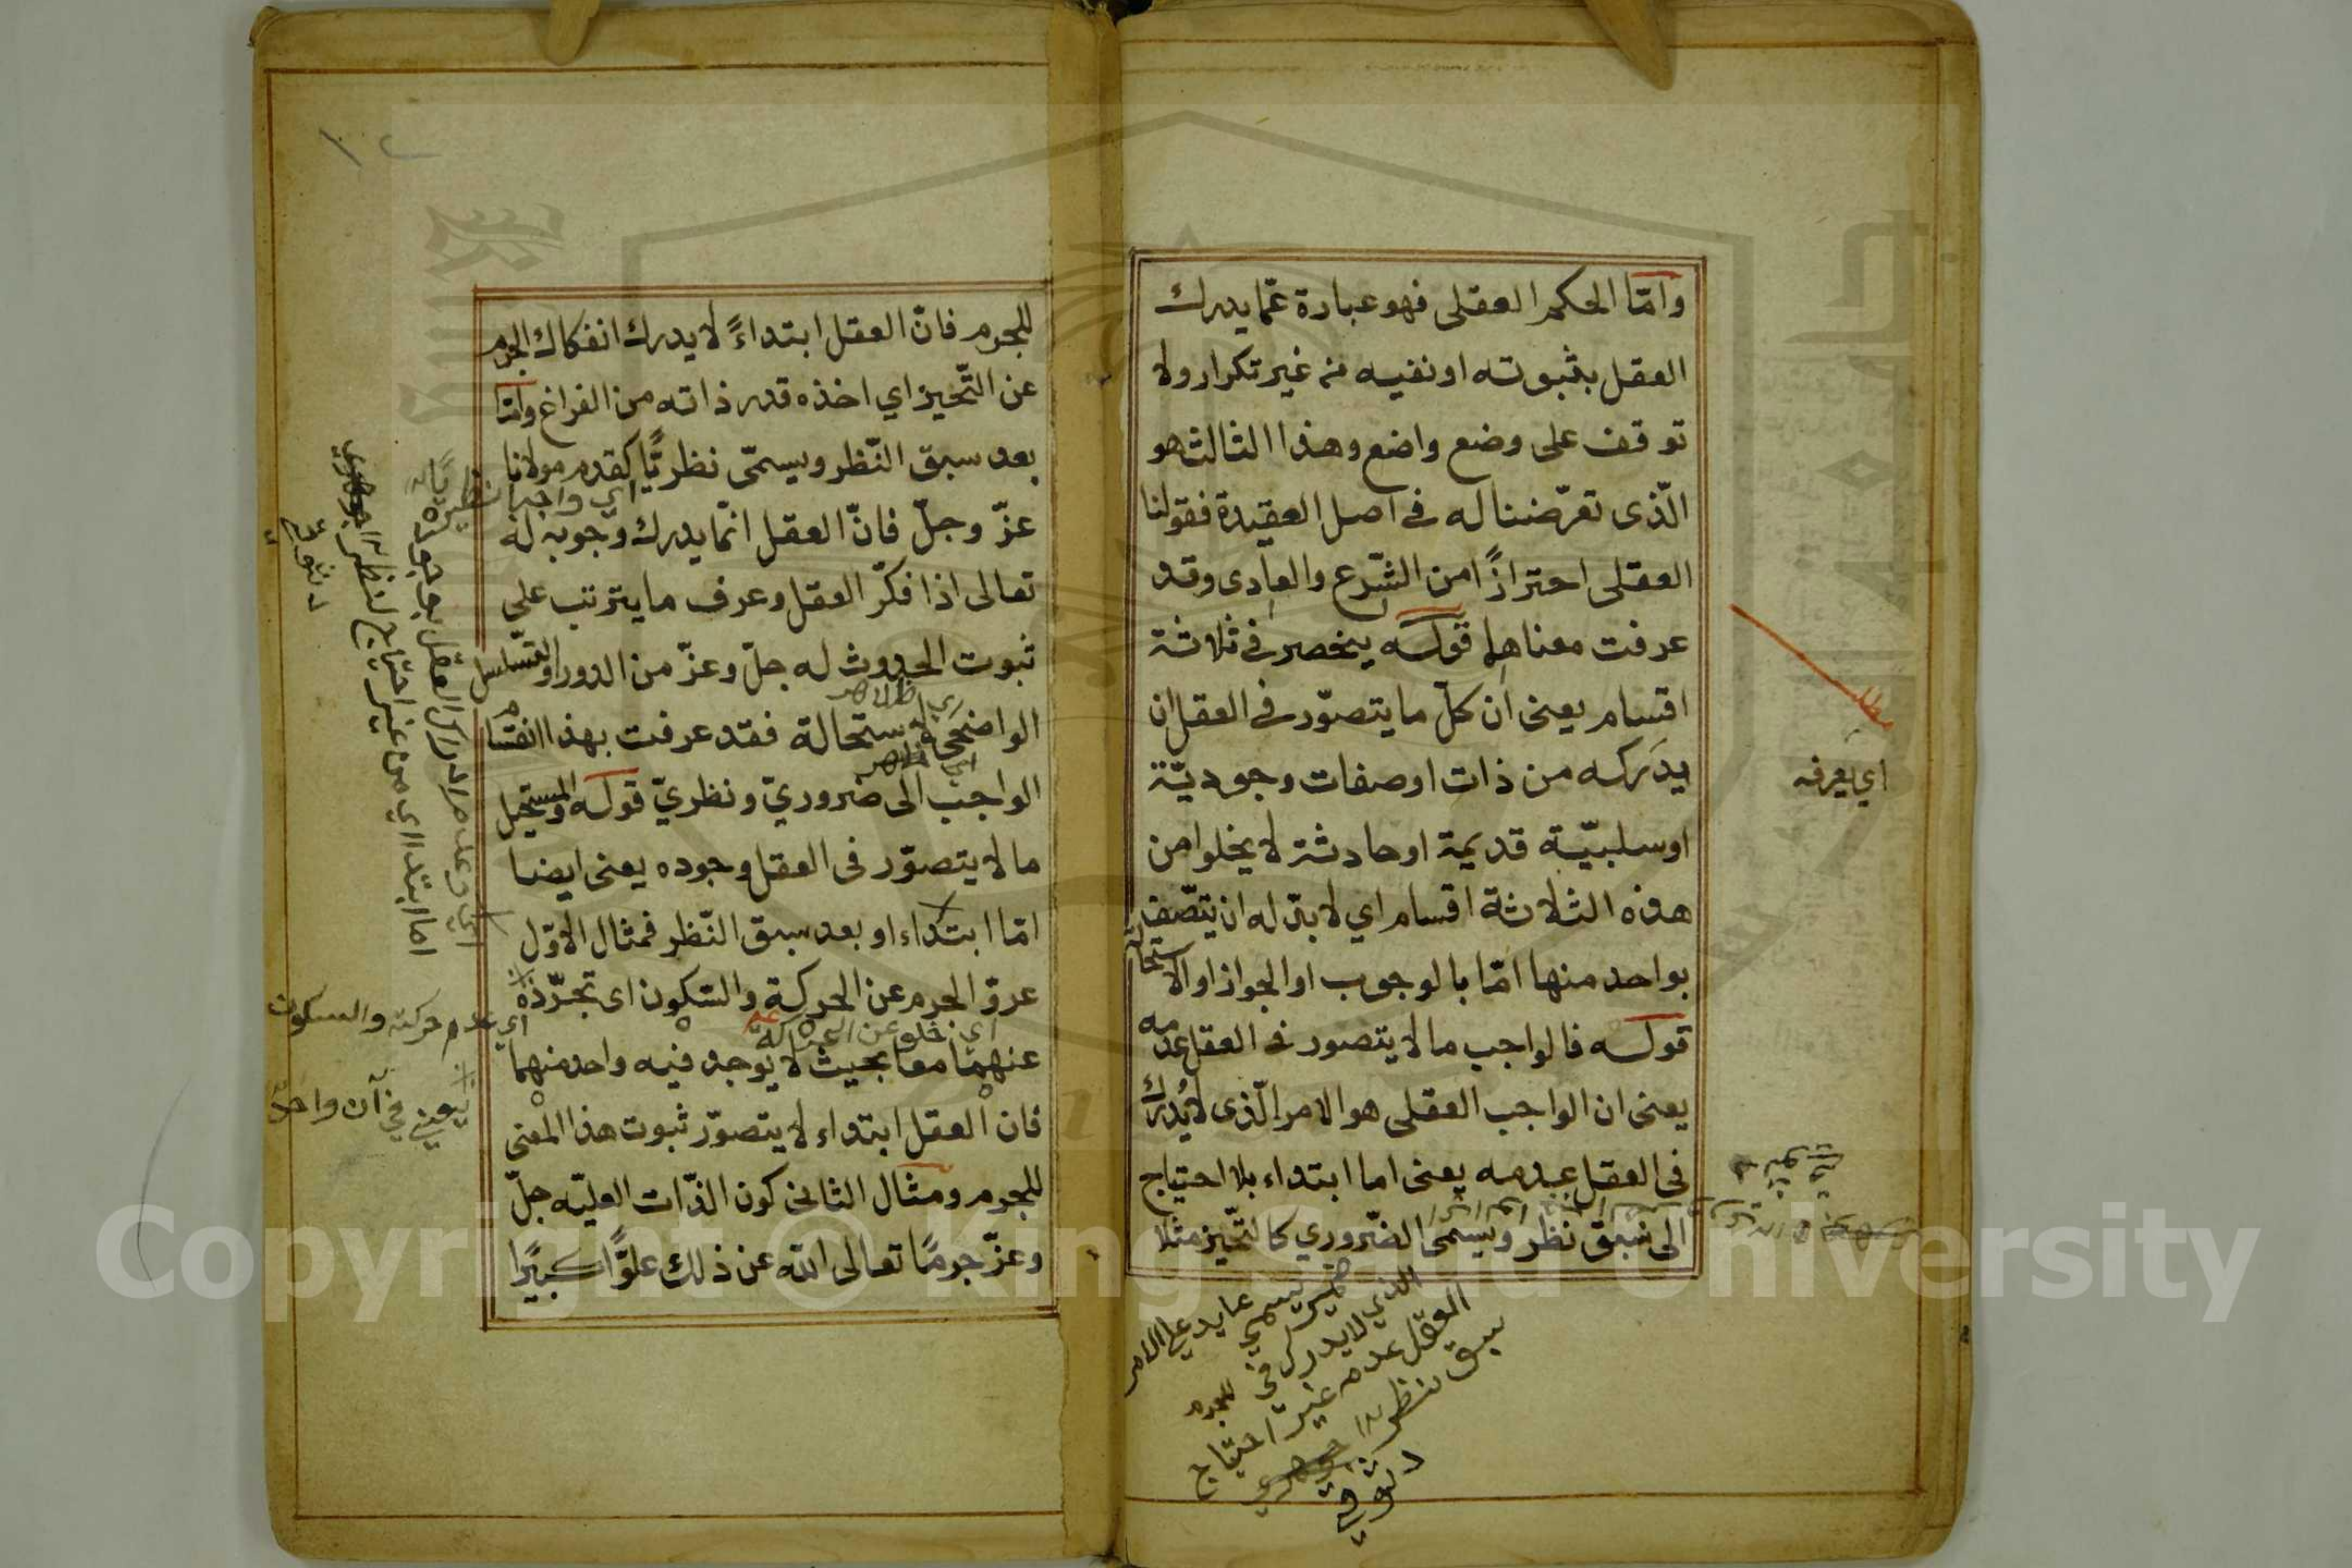 وامّا الحكم العقلى فهو عبارة عمّا يدرك
العقل بثبوته او نفيه من غير تكرار ولا
توقف على وضع واضع وهذا الثالث هو
الّذى تعرّضنا له فى اصل العقيدة فقولنا
العقلى احترازًا من الشّرع والعادى وقد
عرفت معناهما قوله ينحصر فى ثلاثة
اقسام يعنى ان كلّ ما يتصوّر فى العقل ان
يدركه من ذات او صفات وجوديّة
او سلبيّة قديمة او حادثة لا يخلوا من
هذه الثلاثة اقسام اي لا بدّ له ان يتّصف
بواحد منها امّا بالوجوب او الجواز او الاستحالة
قوله فالواجب ما لا يتصور فى العقل عدمه
يعنى ان الواجب العقلى هو الامر الّذى لا يُدرك
فى العقل عدمه يعنى اما ابتداء بلا احتياج
الى سبق نظر ويسمى الضّروري كالتّحيز مثلا
اي يعرفه
ضمير يسمي عايد على الامر
الذي لا يدرك في
العقل عدمه غير احتياج
سبق نظر
للجرم
للجرم فانّ العقل ابتداءً لا يدرك انفكاك الجرم
عن التّحيز اي اخذه قدر ذاته من الفراغ وامّا
بعد سبق النّظر ويسمّى نظريًّا كقدم مولانا
عزّ وجلّ فانّ العقل انّما يدرك وجوبه له
تعالى اذا فكّر العقل وعرف ما يترتب على
ثبوت الحدوث له جلّ وعزّ من الدور او التسلسل
الواضحى الاستحالة فقد عرفت بهذا انقسام
الواجب الى ضروريّ ونظريّ قوله والمستحيل
ما لا يتصوّر فى العقل وجوده يعنى ايضا
امّا ابتداء او بعد سبق النّظر فمثال الاوّل
عروّ الجرم عن الحركة والسّكون اى تجرّده
عنهما معا بحيث لا يوجد فيه واحد منهما
فان العقل ابتداء لا يتصوّر ثبوت هذا المعنى
للجرم ومثال الثانى كون الذّات العليّه جلّ
وعزّ جرمًا تعالى الله عن ذلك علوًّا كبيرًا
اي عدم حركته والسكون
يعني في آن واحد
اما ابتداء اي من غير احتياج لنظر
Copyright © King Saud University